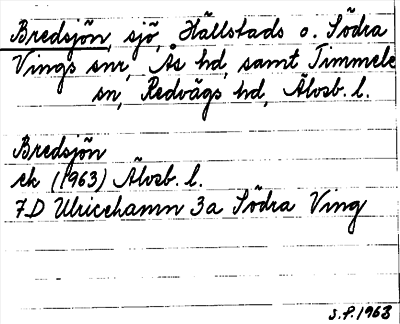 Bredsjön, sjö, Hällstads o. Södra
Vings snr, Ås hd, samt Timmele
sn, Redvägs hd, Älvsb. l.
Bredsjön
ek (1963) Älvsb. l.
7D Ulricehamn 3a Södra Ving
S.P. 1968